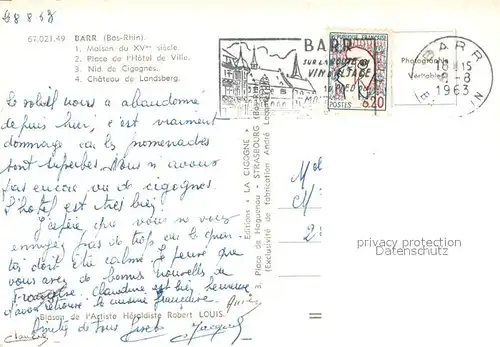 88863
67.021.49 BARR (Bas-Rhin).
1. Maison du XVme siècle.
2. Place de l'Hôtel de Ville.
3. Nid de Cigognes.
4. Château de Landsberg.
Le soleil nous a abandonné
depuis hier, c'est vraiment
dommage car les promenades
sont superbes. Nous n'avons
pas encore vu de cigognes.
L'hôtel est très bien.
J'espère que vous ne vous
ennuyez pas de trop car le quar
tier doit être calme. Je pense que
vous avez de bonnes nouvelles de
Françoise. Claudine est bien heureuse
d'avoir retrouvé la cuisine française.
Amitiés de tous
Claudine Jacques
Blason de l'Artiste Héraldiste Robert LOUIS.
Editions « LA CIGOGNE »
3, Place de Haguenau - STRASBOURG
(Exclusivité de fabrication André
BARR
SUR LA ROUTE DU
VIN D'ALSACE
REPUBLIQUE FRANCAISE
POSTES 0,20
BARR
18H15
9-8
1963
Photographie
Véritable
privacy protection
Datenschutz